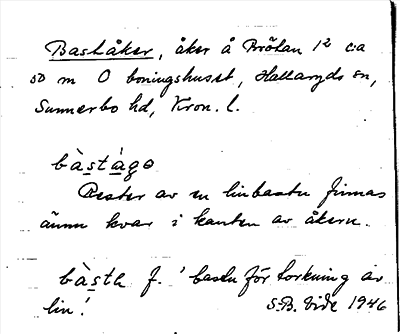 Baståker, åker å Brötan 1² c:a
50 m O boningshuset, Hallaryds sn,
Sunnerbo hd, Kron. l.
bàstágə
Rester av en linbastu finnas
ännu kvar i kanten av åkern.
bàstɩ f. 'bastu för torkning av
lin'. S.B. Vide 1946